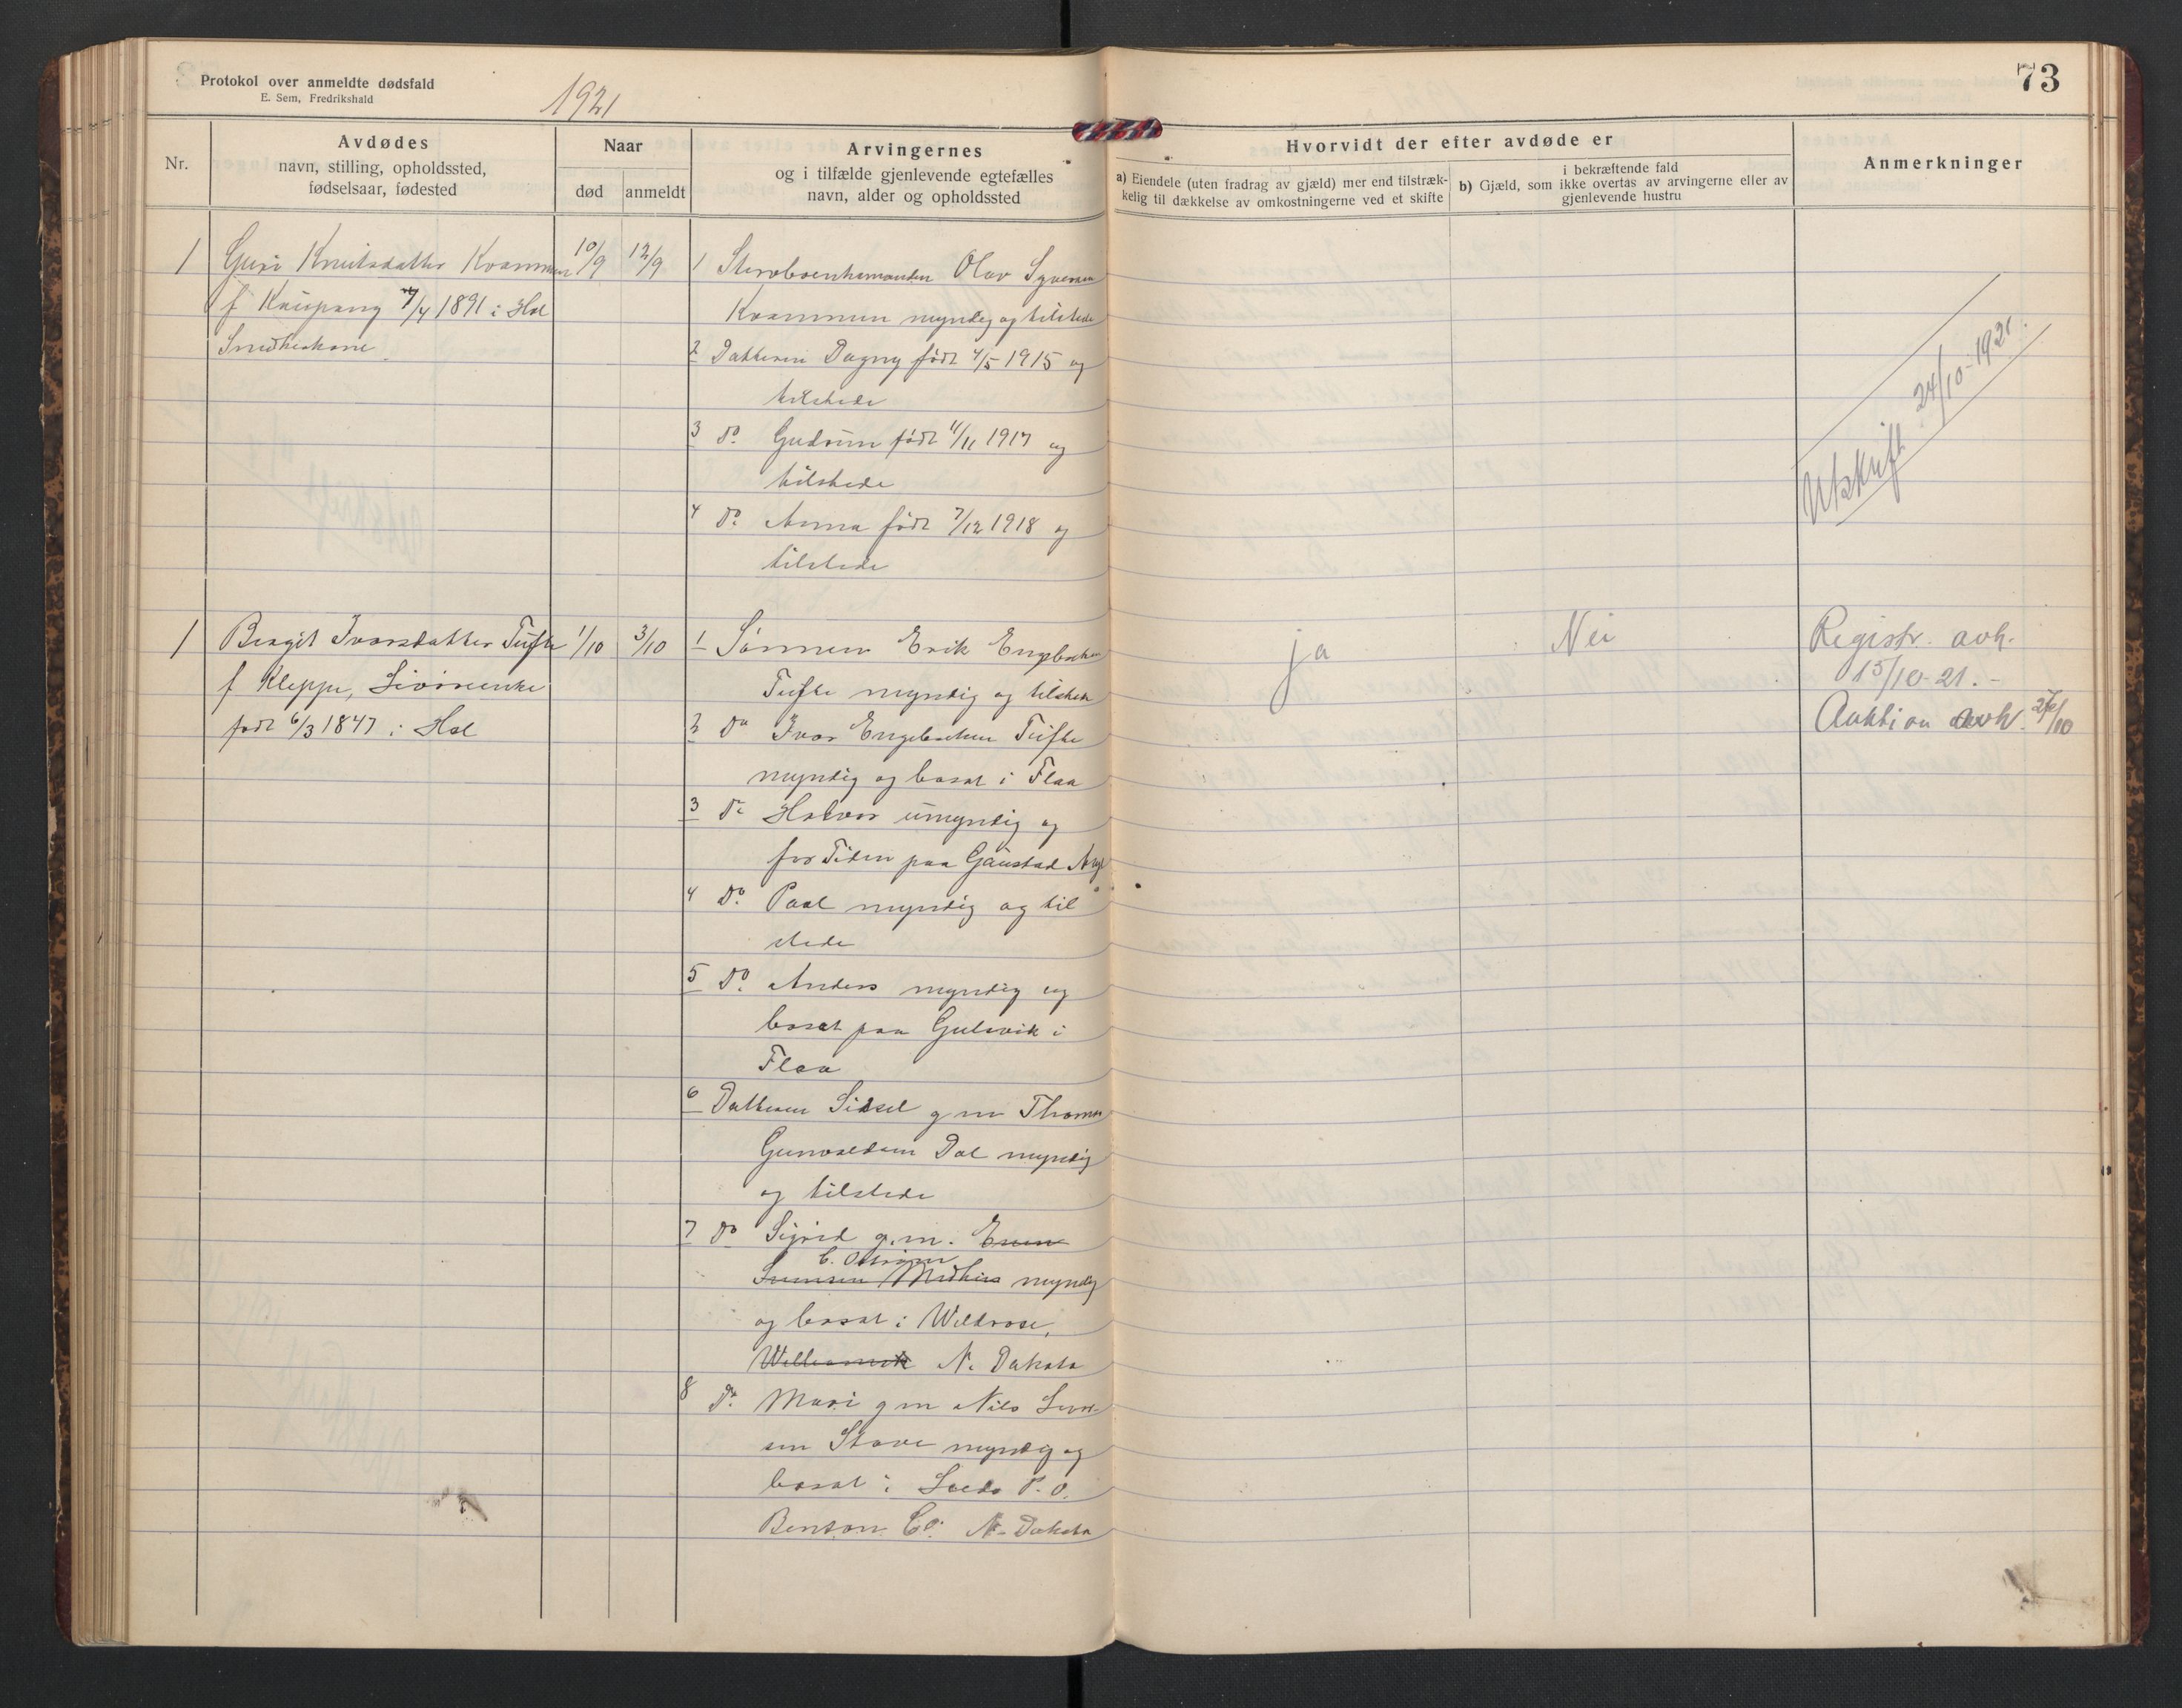 Protokol over anmeldte dødsfald
E. Sem, Fredrikshald
1921
73
Nr.
Avdødes
navn, stilling, opholdssted,
fødselsaar, fødested
Naar
død
anmeldt
Arvingernes
og i tilfælde gjenlevende egtefælles
navn, alder og opholdssted
Hvorvidt der efter avdøde er
a) Eiendele (uten fradrag av gjæld) mer end tilstræk-
kelig til dækkelse av omkostningerne ved et skifte
i bekræftende fald
b) Gjæld, som ikke overtas av arvingerne eller av
gjenlevende hustru
Anmerkninger
1 Guri Knutsdatter Kvammen 10/9 12/9
f Kaupang 7/4 1891 i Hol
1 Olav Syversen
Kvammen myndig og tilstede
2 Datteren Dagny født 4/5 1915 og
tilstede
3 Do Gudrun født 11/11 1917 og
tilstede
4 Do Anna født 7/12 1918 og
tilstede
Utskrift 24/10-1921.
1 Birgit Ivarsdatter Tufte 1/10 3/10
f Kleppe,
født 6/3 1847 i Hol
1 Sønnen Erik Engebretsen
Tufte myndig og tilstede
2 Do Ivar Engebretsen Tufte
myndig og bosat i Flaa
3 Do Halvor umyndig og
for Tiden paa Gaustad Asyl
4 Do Paal myndig og til
stede
5 Do Anders myndig og
bosat paa Gulsvik i
Flaa
6 Datteren Sidsel g m Thomas
Gunvaldsen Dal myndig
og tilstede
7 Do Sigrid g.m.
myndig
og bosat i Wildrose,
N. Dakota
8 Do Mari g m Nils
sen Stave myndig og
bosat i Leeds P.O.
Benson Co. N. Dakota
ja
Nei
Registr. avh.
15/10-21.-
Auktion avh. /10